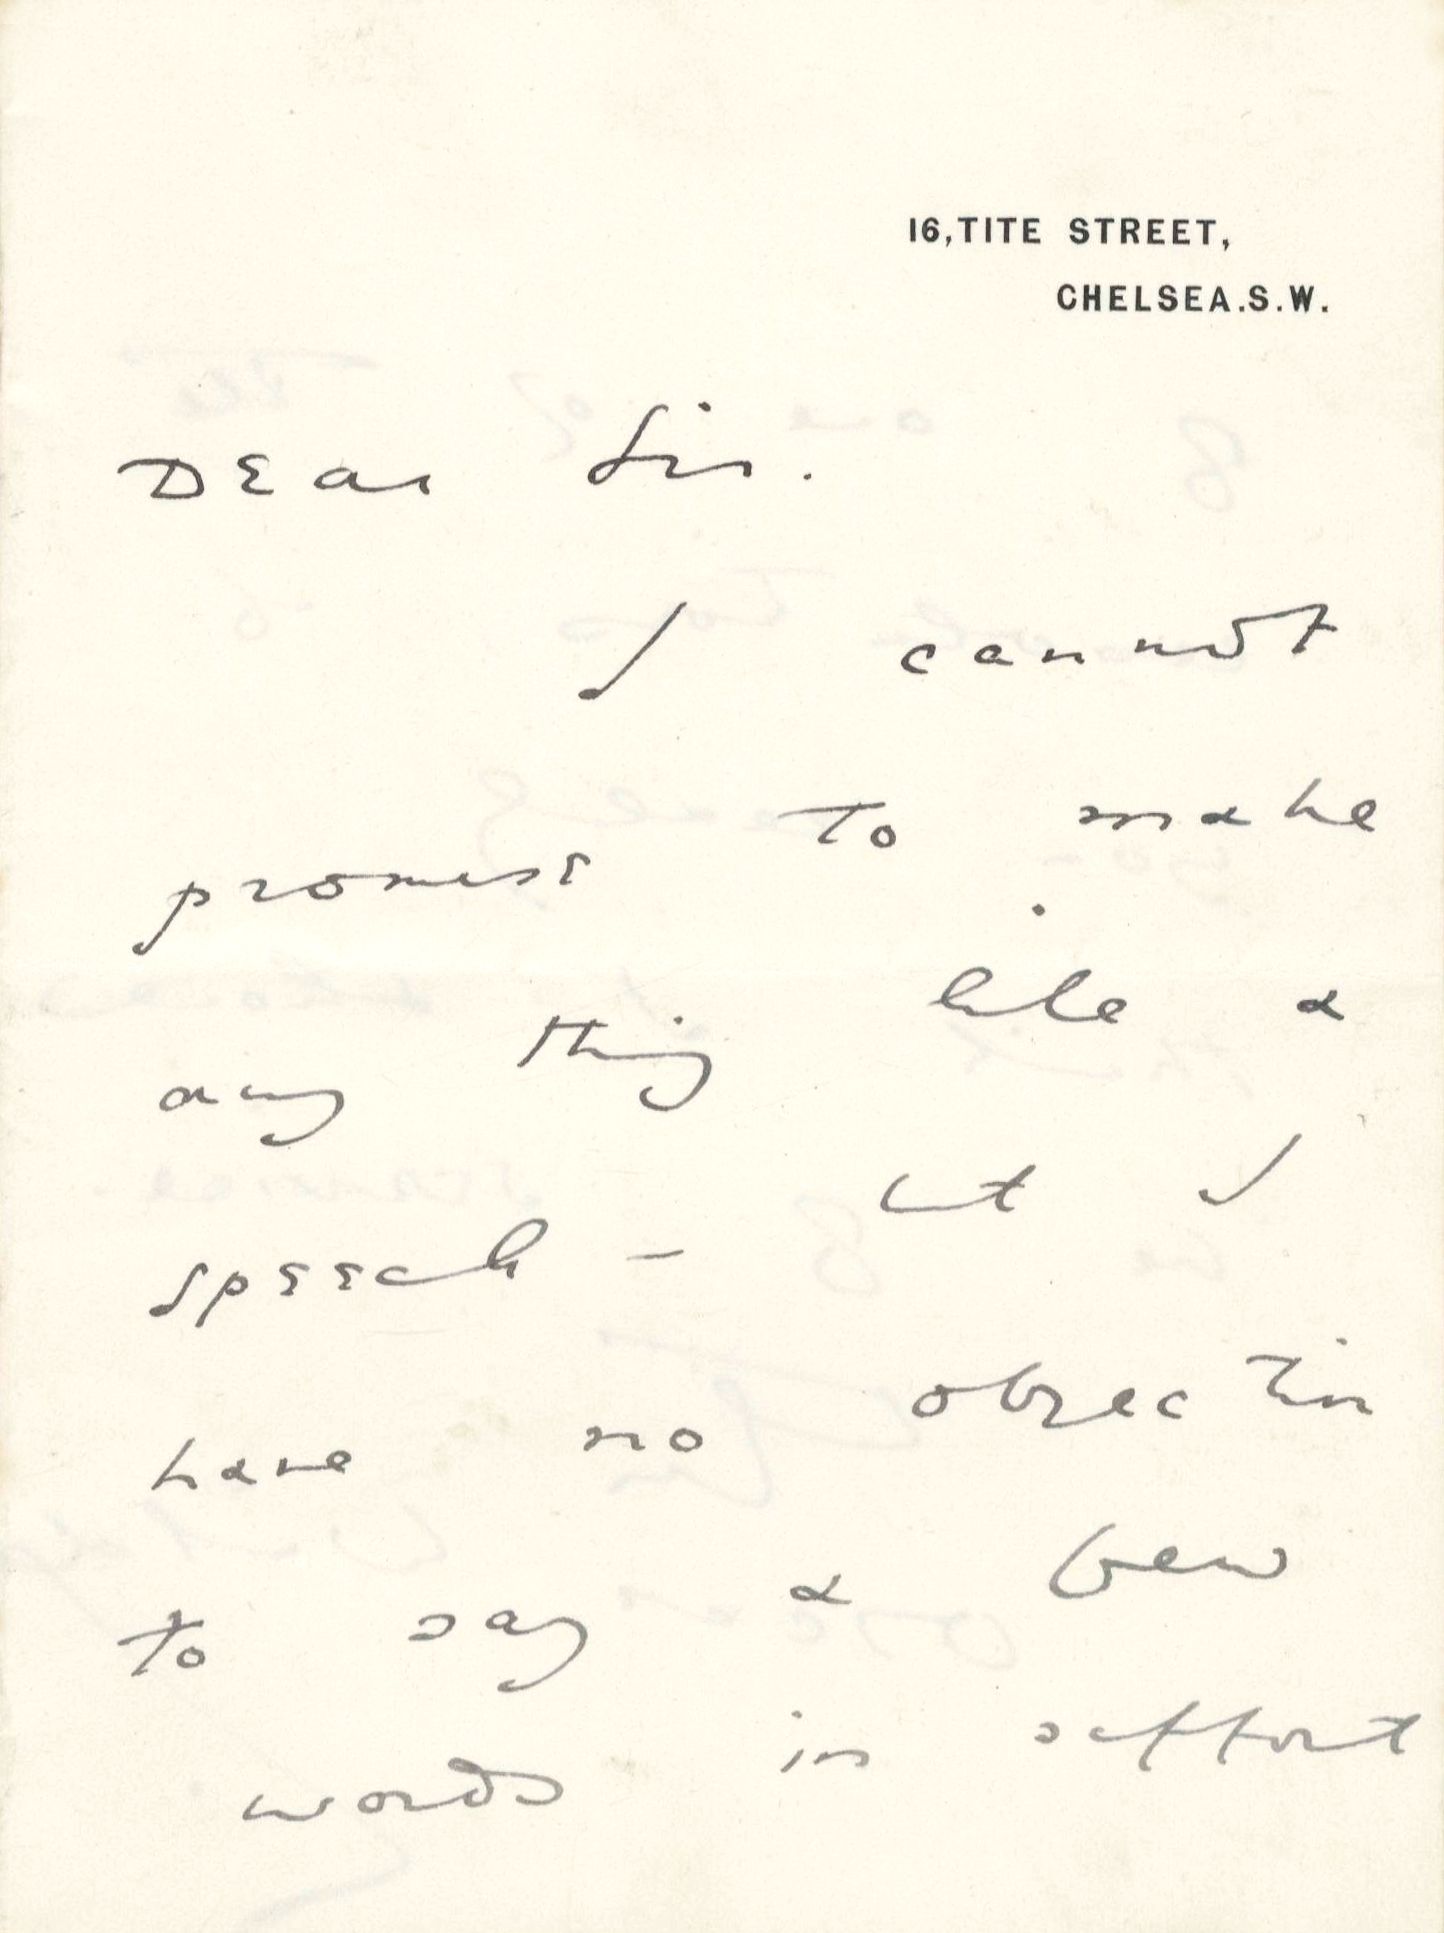 16, TITE STREET,
CHELSEA. S. W.
Dear Sir.
I cannot
promise to make
any thing like a
speech – but I
have no objection
to say a few
words in support